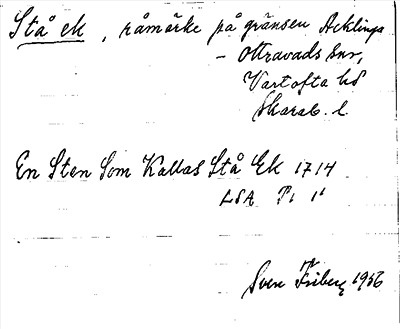 Stå ek, råmärke på gränsen Acklinga
– Ottravads snr,
Vartofta hd
Skarab. l.
En Sten Som Kallas Stå Ek 1714
LSA P1 1¹
Sven Friberg 1956